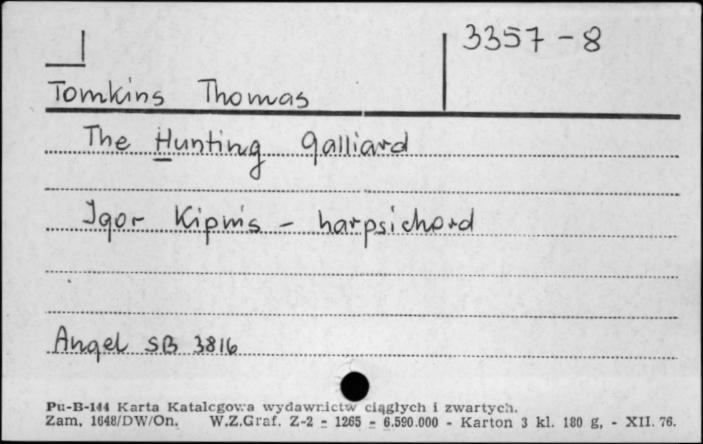 3357-8
Tomkins Thomas
The Hunting galliard
Igor Kipnis - harpsichord
Angel SB 3816
Pu-B-144 Karta Katalogowa wydawnictw ciągłych i zwartych.
Zam. 1648/DW/On. W.Z.Graf. Z-2 - 1265 - 6.590.000 - Karton 3 kl. 180 g, - XII. 76.